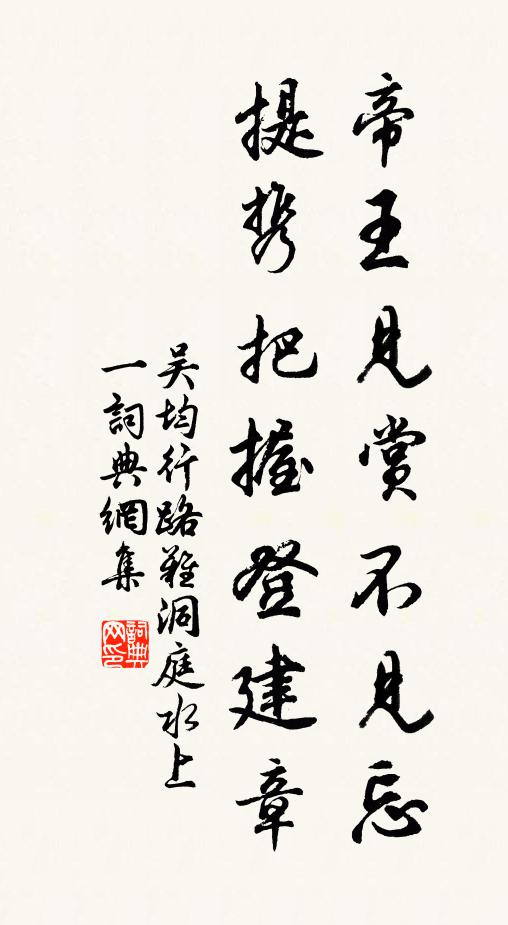 帝王見賞不見忘
提携把握登建章
吴均行路難洞庭水上
一詞典網集
詞典
网印